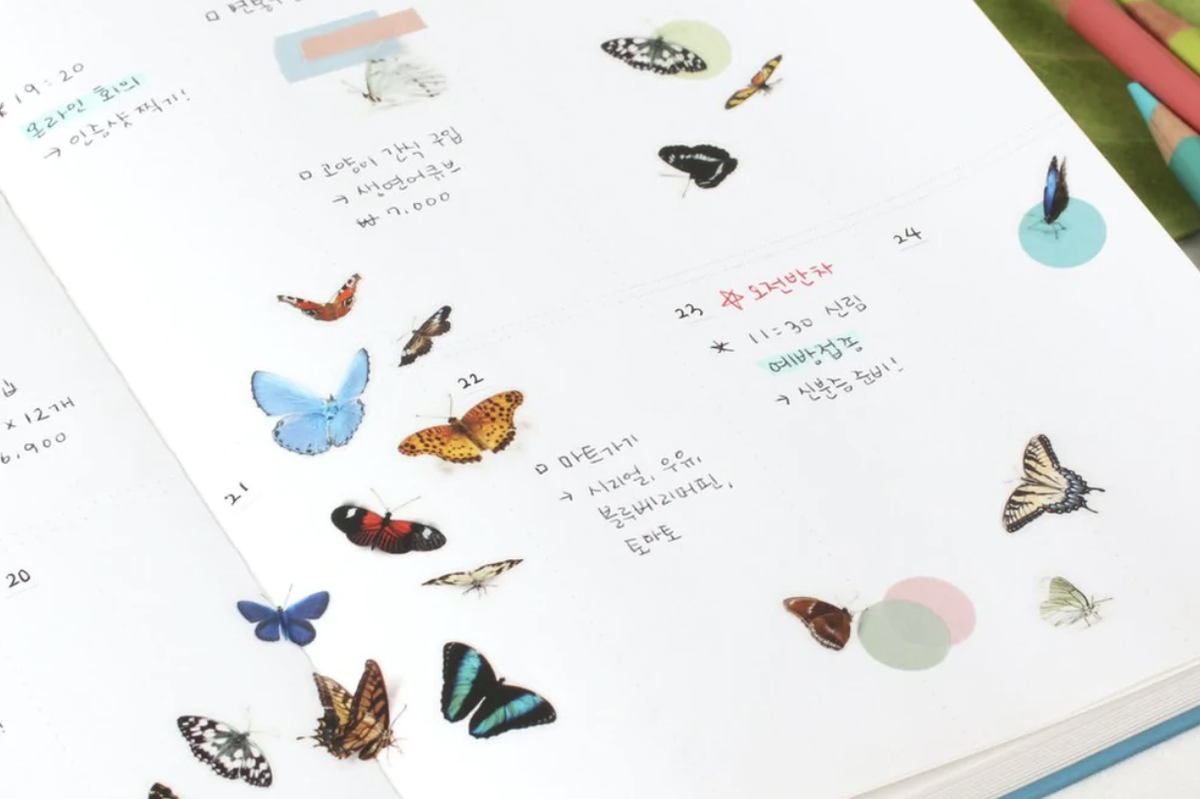 * 19:20
온라인 회의
→ 인증샷 찍기!
□ 고양이 간식 구입
→ 생연어큐브
₩ 7.000
x 12개
6.900
20
21
22
□ 마트가기
→ 시리얼, 우유,
블루베리머핀,
토마토
23 ☆ 오전반차
* 11:30 신림
예방접종
→ 신분증 준비!
24